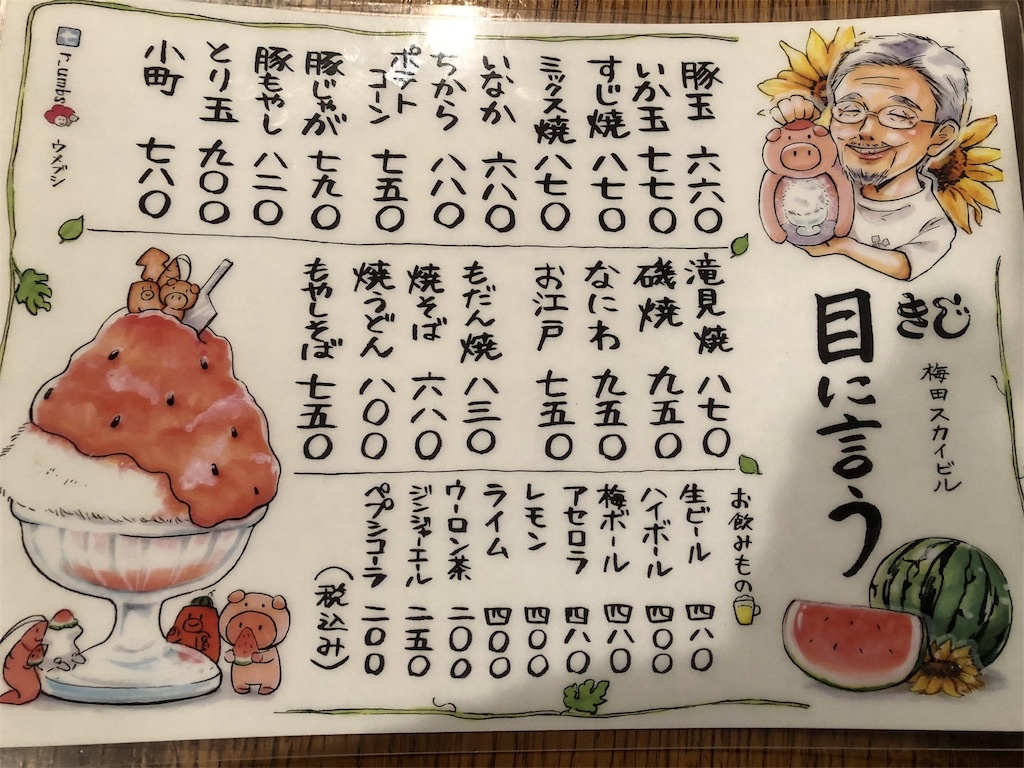 きじ
梅田スカイビル
目に言う
豚玉 六六〇
いか玉 七七〇
すじ焼 八七〇
ミックス焼 八七〇
いなか 六八〇
ちから 八八〇
ポテトコーン 七五〇
豚じゃが 七九〇
豚もやし 八二〇
とり玉 九〇〇
小町 七八〇
滝見焼 八七〇
磯焼 九五〇
なにわ 九五〇
お江戸 七五〇
もだん焼 八三〇
焼そば 六八〇
焼うどん 八〇〇
もやしそば 七五〇
お飲みもの
生ビール 四八〇
ハイボール 四〇〇
梅ボール 四八〇
アセロラ 四八〇
レモン 四〇〇
ライム 四〇〇
ウーロン茶 二〇〇
ジンジャーエール 二五〇
ペプシコーラ 二〇〇
(税込み)
r_umbs
ウメブシ